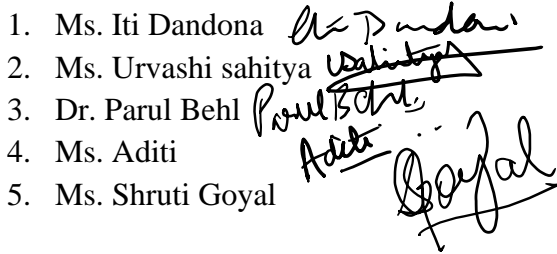 1. Ms. Iti Dandona Iti Dandona
2. Ms. Urvashi sahitya
3. Dr. Parul Behl Parul Behl
4. Ms. Aditi Aditi
5. Ms. Shruti Goyal Goyal